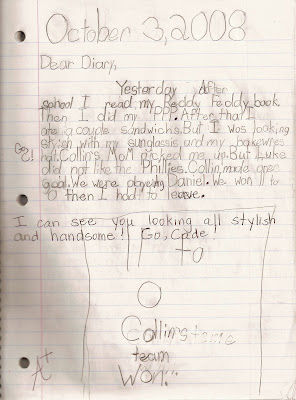 October 3, 2008
Dear Diary,
Yesterday After
school I read my Reddy Feoldy book
Then I did my "PPP". After that I
ate a couple sandwichs. But I was looking
stylish with my sunglassis and my
hat. Collin's MoM picked me up. But Luke
did not like the Phillies. Collin made one
Goal. We were playeing Daniel. We won 11 to
0 then I had to leave.
I can see you looking all stylish
and handsome! Go, Cade!
to
Collin's
team
Won
A+